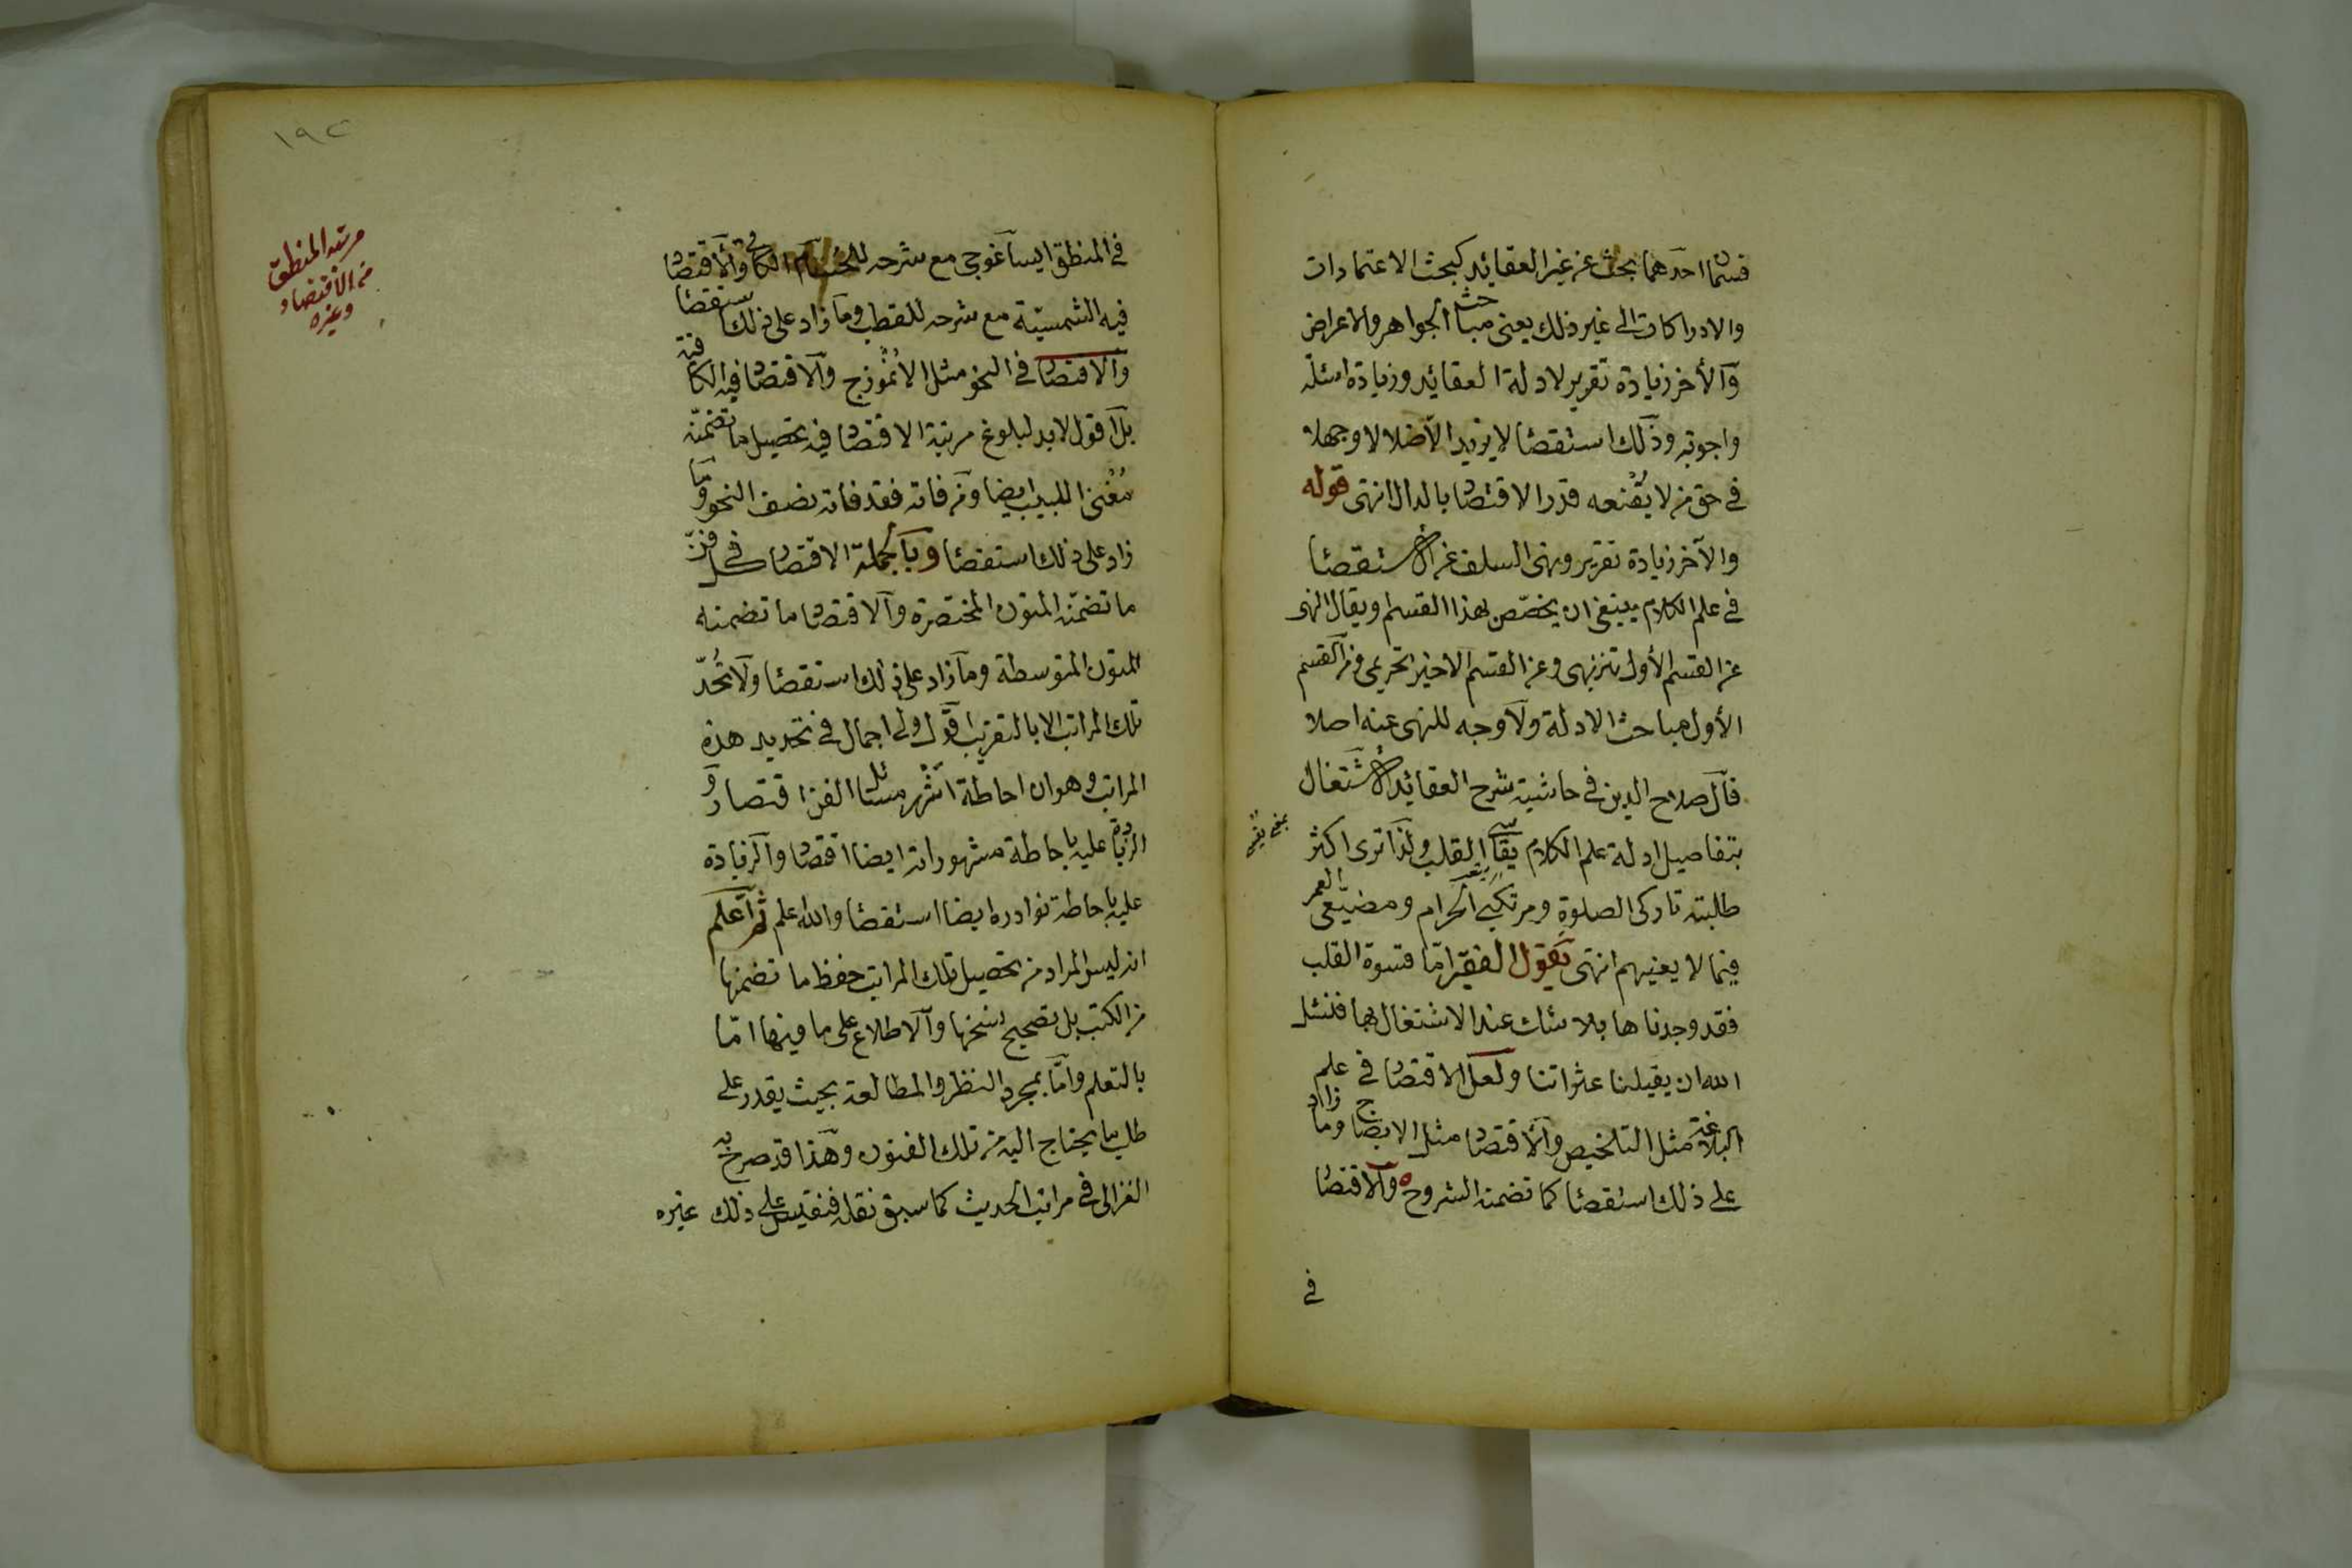 قسمان احدهما بحث عن غير العقائد كبحث الاعتمادات
والادراكات الى غير ذلك يعنى مباحث الجواهر والاعراض
والأخر زيادة تقرير لادلة العقائد وزيادة اسئلة
واجوبة وذلك استقصا لا يزيد الا ضلالا وجهلا
فى حق من لا يقنعه قدر الاقتصاد بالدال انتهى قوله
والآخر زيادة تقرير ونهى السلف عن الاستقصا
فى علم الكلام ينبغى ان يخصص بهذا القسم ويقال النهى
عن القسم الأول تنزيهى وعن القسم الاخير تحريمى ومن القسم
الأول مباحث الادلة ولا وجه للنهى عنه اصلا
قال صلاح الدين فى حاشية شرح العقائد الاشتغال
بتفاصيل ادلة علم الكلام يقسى القلب ولذا ترى اكثر
طلبته تاركى الصلوة ومرتكبى الحرام ومضيعى العمر
فيما لا يعنيهم انتهى يقول الفقير اما قسوة القلب
فقد وجدناها بلا شك عند الاشتغال بها فنسئل
الله ان يقيلنا عثراتنا ولعل الاقتصار فى علم
البلاغة مثل التلخيص والاقتصاد مثل الايضاح وما زاد
على ذلك استقصا كما تضمنه الشروح والاقتصار
فى
١٩٢
فى المنطق ايساغوجى مع شرحه للحسام الكافى والاقتصاد
فيه الشمسية مع شرحه للقطب وما زاد على ذلك استقصا
والاقتصار فى النحو مثل الانموذج والاقتصاد فيه الكافية
بل اقول لابد لبلوغ مرتبة الاقتصاد فيه تحصيل ما تضمنه
مغنى اللبيب ايضا ومن فاته فقد فاته نصف النحو وما
زاد على ذلك استقصا وبالجملة الاقتصار فى كل فن
ما تضمنه المتون المختصرة والاقتصاد ما تضمنه
المتون المتوسطة وما زاد على ذلك استقصا ولا تحد
تلك المراتب الا بالتقريب اقول ولى اجمال فى تحديد هذه
المراتب وهو ان احاطة اشهر مسائل الفن اقتصار و
الزيادة عليه باحاطة مشهوراته ايضا اقتصاد والزيادة
عليه باحاطة نوادره ايضا استقصا والله علم ثم اعلم
انه ليس المراد من تحصيل تلك المراتب حفظ ما تضمنها
من الكتب بل تصحيح نسخها والاطلاع على ما فيها اما
بالتعلم واما بمجرد النظر والمطالعة بحيث يقدر على
طلب ما يحتاج اليه من تلك الفنون وهذا قد صرح به
الغزالى فى مراتب الحديث كما سبق نقله فنقيس على ذلك غيره
مرتبة المنطق
من الاقتصاد
وغيره